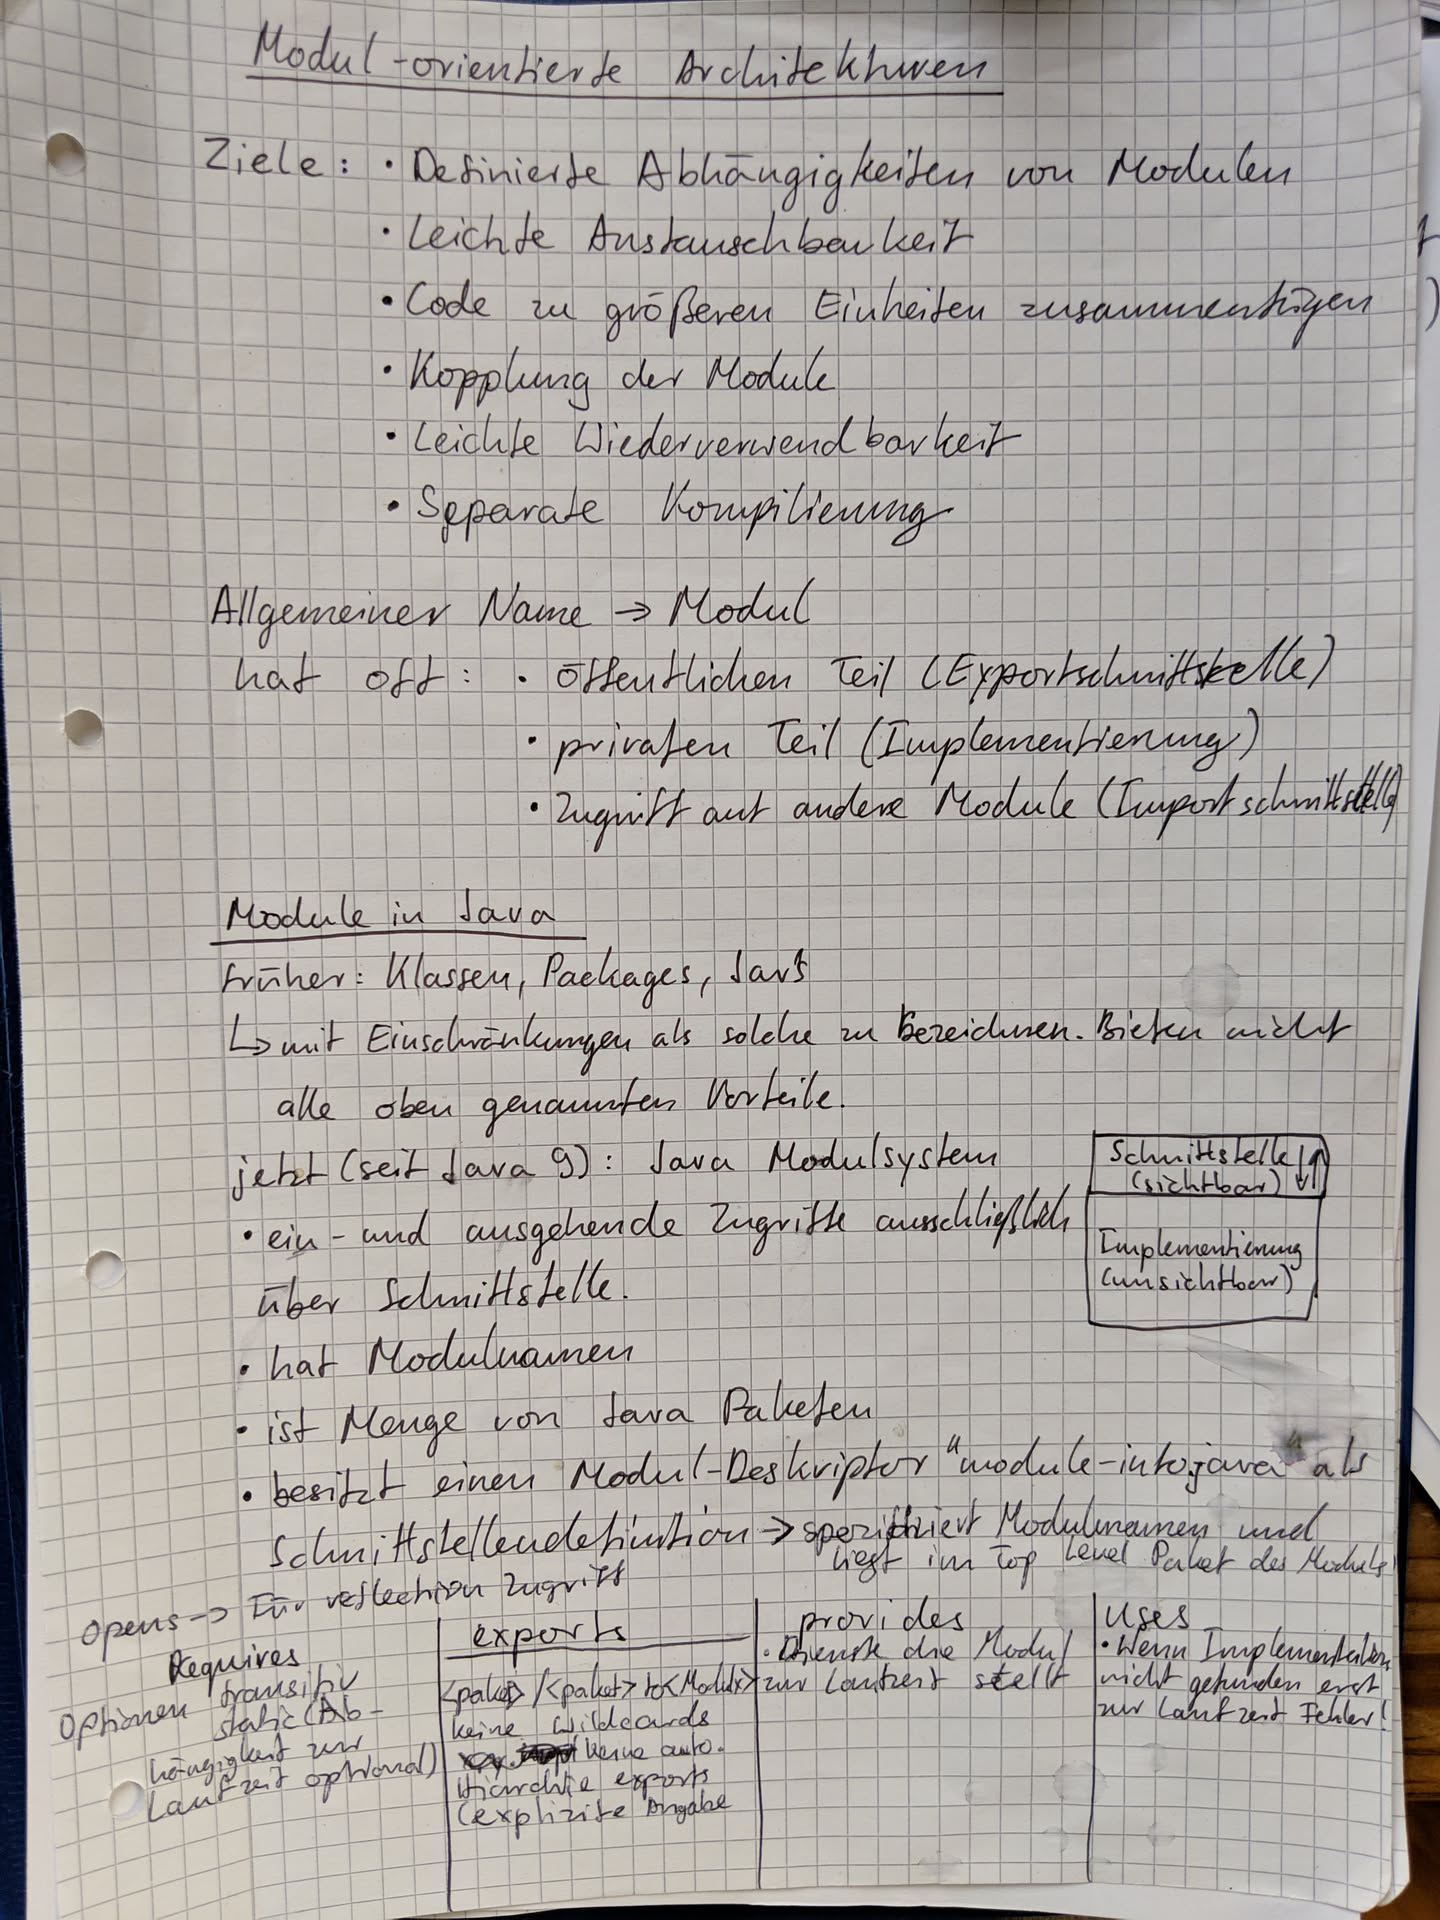 Modul-orientierte Architekturen
Ziele: • Definierte Abhängigkeiten von Modulen
• Leichte Austauschbarkeit
• Code zu größeren Einheiten zusammenfügen
• Kopplung der Module
• Leichte Wiederverwendbarkeit
• Separate Kompilierung
Allgemeiner Name → Modul
hat oft: • öffentlichen Teil (Exportschnittstelle)
• privaten Teil (Implementierung)
• Zugriff auf andere Module (Importschnittstelle)
Module in Java
früher: Klassen, Packages, Jars
↳ mit Einschränkungen als solche zu bezeichnen. Bieten nicht
alle oben genannten Vorteile.
jetzt (seit Java 9): Java Modulsystem
• ein- und ausgehende Zugriffe ausschließlich
über Schnittstelle.
Schnittstelle ↓↑
(sichtbar)
Implementierung
(unsichtbar)
• hat Modulnamen
• ist Menge von Java Paketen
• besitzt einen Modul-Deskriptor "module-info.java" als
Schnittstellendefinition → spezifiziert Modulnamen und
liegt im Top Level Paket des Moduls
Opens → Für reflection Zugriff
Requires
Optionen transitiv
static (Ab-
hängigkeit zur
Laufzeit optional)
exports
<paket> / <paket> to <Modul>
keine Wildcards
keine auto.
Hierarchie exports
(explizite Angabe
provides
• Dienste die Modul
zur Laufzeit stellt
uses
• Wenn Implementation
nicht gefunden erst
zur Laufzeit Fehler!